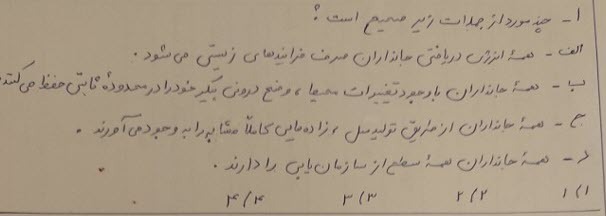 ۱- چند مورد از جملات زیر صحیح است ؟
الف- همهٔ انرژی دریافتی جانداران صرف فرایندهای زیستی می شود .
ب- همهٔ جانداران با وجود تغییرات محیط ، وضع درونی پیکر خود را در محدودهٔ ثابتی حفظ می کنند
ج- همهٔ جانداران از طریق تولیدمثل ، زاده هایی کاملاً مشابه را به وجود می آورند .
د- همهٔ جانداران همهٔ سطوح از سازمان یابی را دارند .
۱) ۱ ۲) ۲ ۳) ۳ ۴) ۴